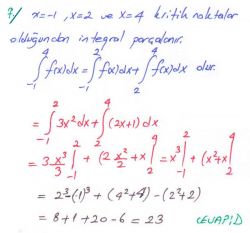 7/ x=-1, x=2 ve x=4 kritik noktalar
olduğundan integral parçalanır.
∫₋₁⁴ f(x)dx = ∫₋₁² f(x)dx + ∫₂⁴ f(x)dx dur.
= ∫₋₁² 3x²dx + ∫₂⁴ (2x+1)dx
= 3 x³/3 |₋₁² + (2 x²/2 + x |₂⁴ = x³ |₋₁² + (x²+x |₂⁴
= 2³-(-1)³ + (4²+4) - (2²+2)
= 8+1+20-6 = 23 CEVAP: D